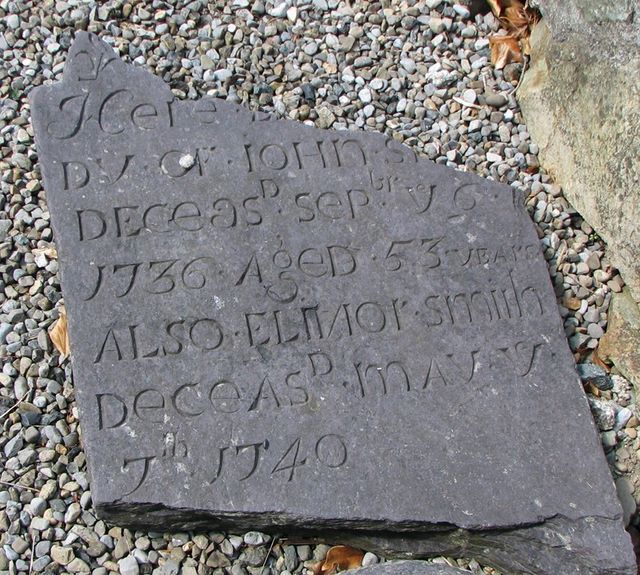 Here
DY · OF · IOHN S
DECEASD · SEPbr · Y 6
1736 · AgED · 53 YEARS
ALSO · ELINOr · Smith
DECEASD · MAY · Y
7th 1740